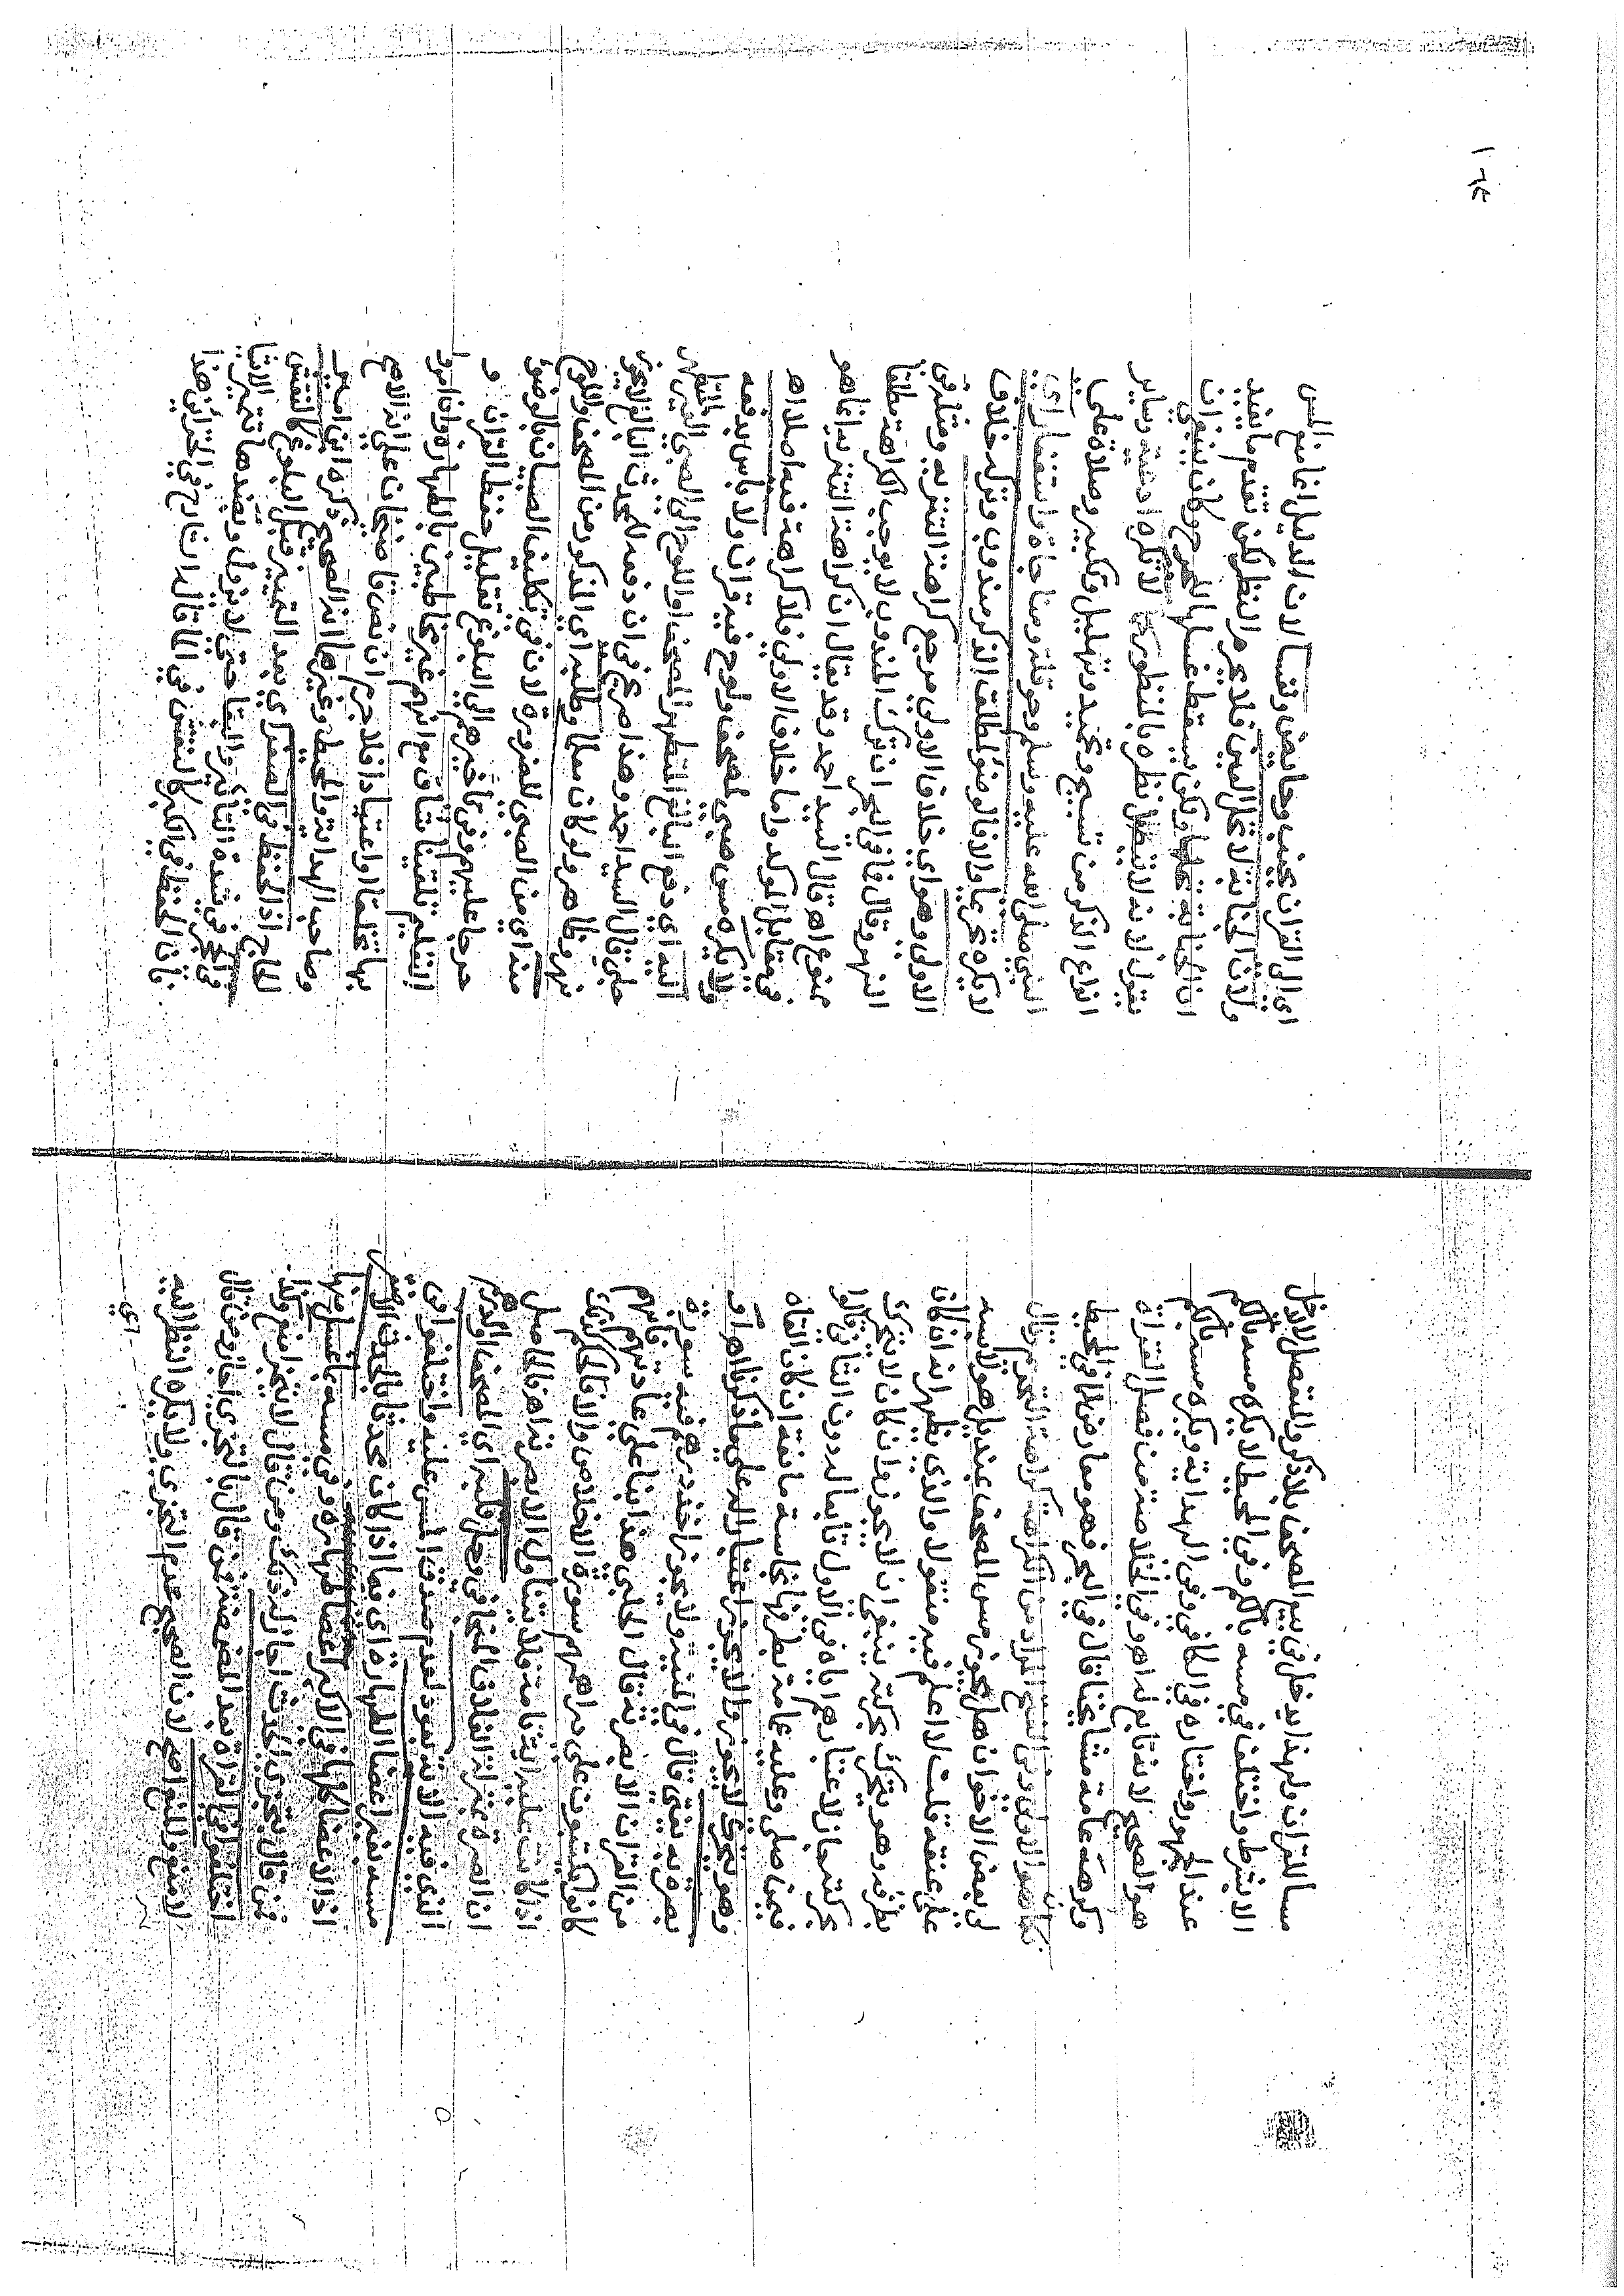 مسا للقران ولهذا يدخل في بيع المصحف بلا ذكر والمتصل لا يدخل
الا بشرط واختلف في مسه بالكم وفي المحيط لا يكره مسه بالكم
عند الجمهور واختاره في الكافي وفي الهداية ويكره مسه بالكم
هو الصحيح لانه تابع له اهو في الخلاصة من فصل القراة
وكرهه عامة مشايخنا قال في البحر فهو معارض لما في المحيط
فكان هو الاولى وفي الفتح المراد من الكراهة كراهة التحريم وقال
لي بعض الاخوان هل يجوز مس المصحف بمنديل هو لابسه
على عنقه قلت لا اعلم فيه منقولا والذي يظهر انه ان كان
بطرفه وهو يتحرك بحركته ينبغي ان لا يجوز وان كان لا يتحرك
بحركته جاز لاعتبارهم اياه في الاول تابعا له دون الثاني قالوا
فيمن صلى وعليه عمامة بطرفها نجاسة مانعة ان كان القاه
وهو يتحرك لا يجوز والا يجوز اعتبارا له على ما ذكرنا اهـ و
بصرة به يفتى قال في المنية ولا يجوز اخذ درهم فيه سورة
من القران الا بصرته قال الحلبي هذا بناء على عادتهم فانهم
كانوا يكتبون على دراهمهم سورة الاخلاص والا فالحكم كذلك
اذا كانت عليه اية تامة فلا يتناول الا بصرته اهـ فالحاصل
ان الصرة بمنزلة الغلاف المتجافي وحل قلبه اي المصحف او الدرهم
النفي فيه الاية بعود لعدم صدق المس عليه واختلفوا في
مسه بغير اعضا الطهارة اي فيما اذا كان محدثا بالحدث الاصغر
اذ الاعضا كلها في الاكبر اعضا طهارة وفي مسه بما غسل منها
فمن قال بتجزي الحدث اجاز له ذلك ومن قال لا يتجزا منع وكذا
اختلفوا في القراة بعد المضمضة فمن قال بالتجزي اجاز ومن قال
لا منع والمنع اصح لان الصحيح عدم التجزي ولا يكره النظر اليه
اي
١٦٤
اي الى القران بجنب وحايض ونفسا لان الدليل انما منع المس
ولان الجنابة لا تحل العين فلا يحرم النظر لكن تقدم ما يفيد
ان الجنابة تحلها ولكن يسقط غسلها للحرج وكان ينبغي ان
يقول لانه لا يتصل نظره بالمنظور كما لا تكره ادعية وساير
انواع الذكر من تسبيح وتحميد وتهليل وتكبير وصلاة على
النبي صلى الله عليه وسلم وحوقلة ومناجاة واستغفار اي
لا يكره تحريما والا فالوضوء لمطلق الذكر مندوب وتركه خلاف
الاولى وهو اي خلاف الاولى مرجع كراهة التنزيه ومثله في
النهر وقال في البحر ان ترك المندوب لا يوجب الكراهة مطلقا
ممنوع اهـ قال السيد احمد وقد يقال ان كراهة التنزيه انما هو
في مقابل المؤكد واما خلاف الاولى فلا كراهة فيه اصلا اهـ
ولا يكره مس صبي لمصحف ولوح فيه قران ولا باس بدفعه
اليه اي دفع البالغ المتطهر المصحف او اللوح الى الصبي الغير المتطهر
حلبي قال السيد احمد وهذا صريح في ان دفعه للمحدث البالغ لا يجوز
نهر وظاهره ولو كان معلما وطلبه اي المذكور من المصحف واللوح
منه اي من الصبي للضرورة لان في تكليف الصبيان بالوضوء
حرجا عليهم وفي تاخيرهم الى البلوغ تقليل حفظ القران و
التعليم تلقينا شاق مع انهم غير مخاطبين بالطهارة وان امروا
بها تخلقا واعتيادا فلا جرم ان نص قاضيخان على انه الاصح
وصاحب الهداية والمحيط وغيرهما انه الصحيح ذكره ابن امير
الحاج اذ الحفظ في الصغر اي بعد التمييز وقبل البلوغ كالنقش
في الحجر في شدة التاثير والبقا حتى لا يزول وبضدها تتميز الاشيا
فان الحفظ في الكبر كالنقش في الما قال الشارح في الخزاين هذا